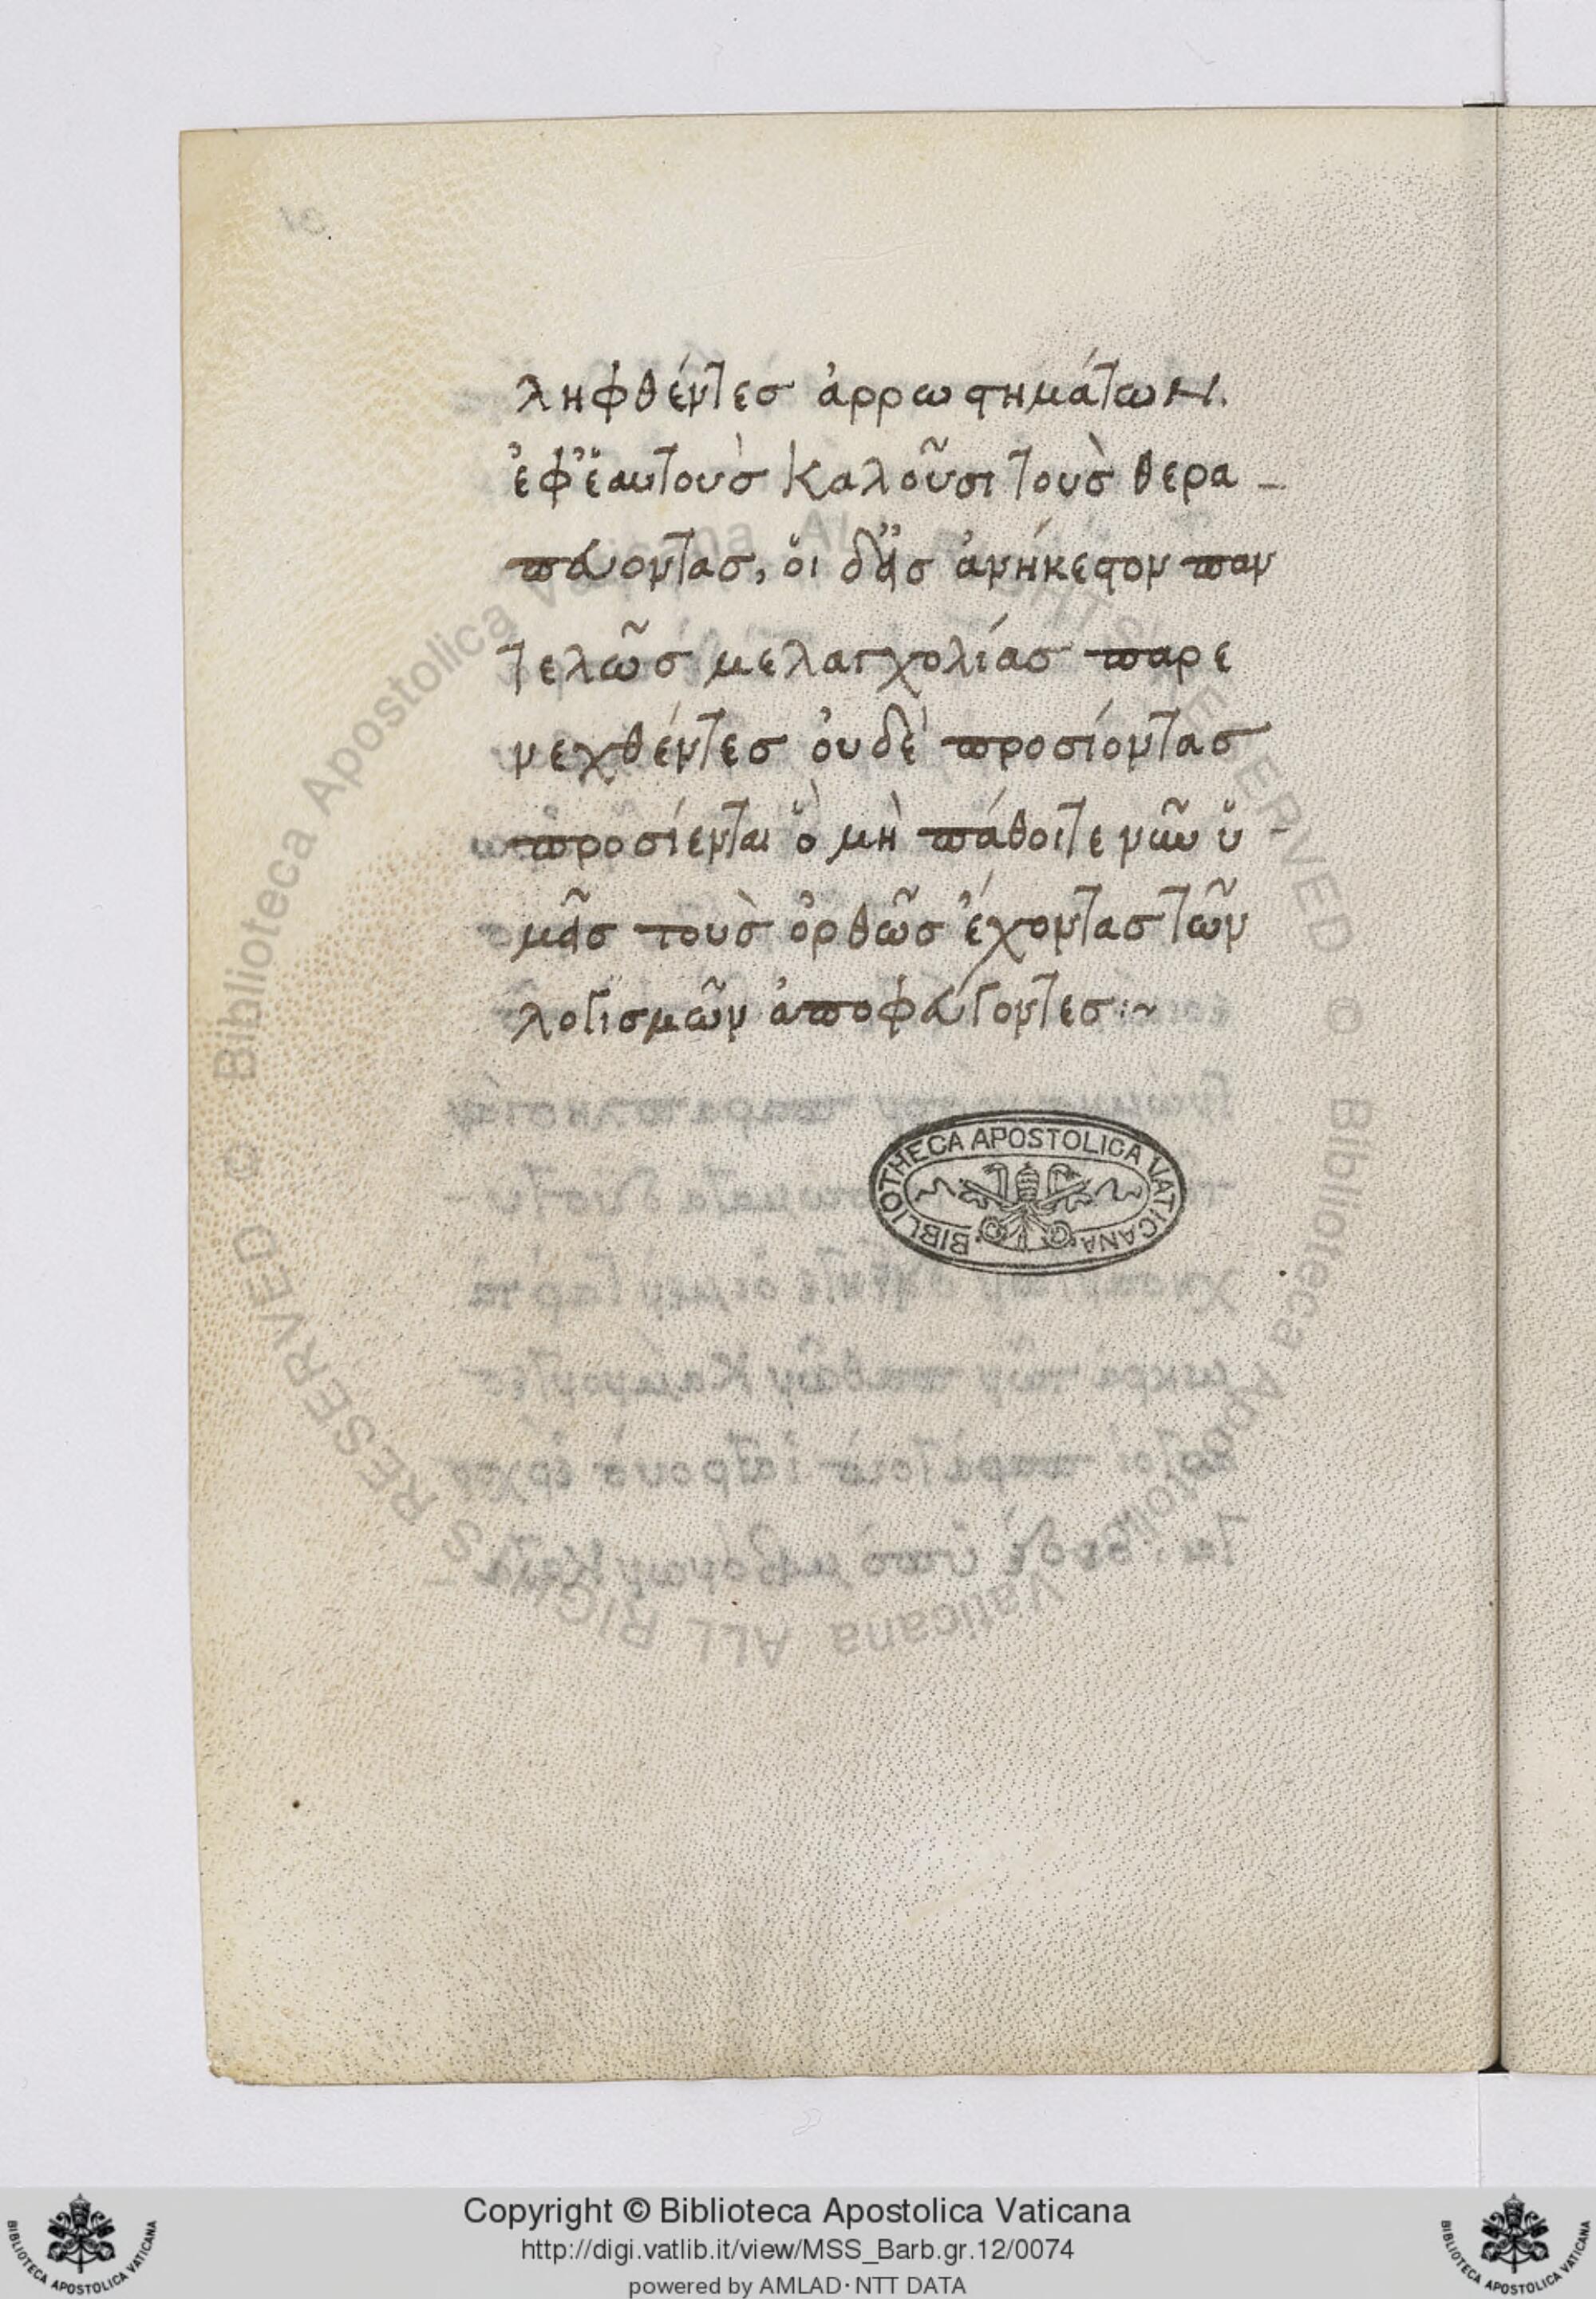 ληφθέντες ἀρρωστημάτων.
ἐφ' ἑαυτοὺς καλοῦσι τοὺς θερα-
πεύοντας, οἱ δ' εἰς ἀνήκεστον παν
τελῶς μελαγχολίας παρε
νεχθέντες οὐδὲ προσιόντας
προσίενται ὃ μὴ πάθοιτε νῦν ὑ-
μᾶς τοὺς ὀρθῶς ἔχοντας τῶν
λογισμῶν ἀποφεύγοντες:~
BIBLIOTHECA APOSTOLICA VATICANA
© Biblioteca Apostolica Vaticana ALL RIGHTS RESERVED © Biblioteca Apostolica Vaticana ALL RIGHTS RESERVED
Copyright © Biblioteca Apostolica Vaticana
http://digi.vatlib.it/view/MSS_Barb.gr.12/0074
powered by AMLAD·NTT DATA
BIBLIOTECA APOSTOLICA VATICANA
BIBLIOTECA APOSTOLICA VATICANA